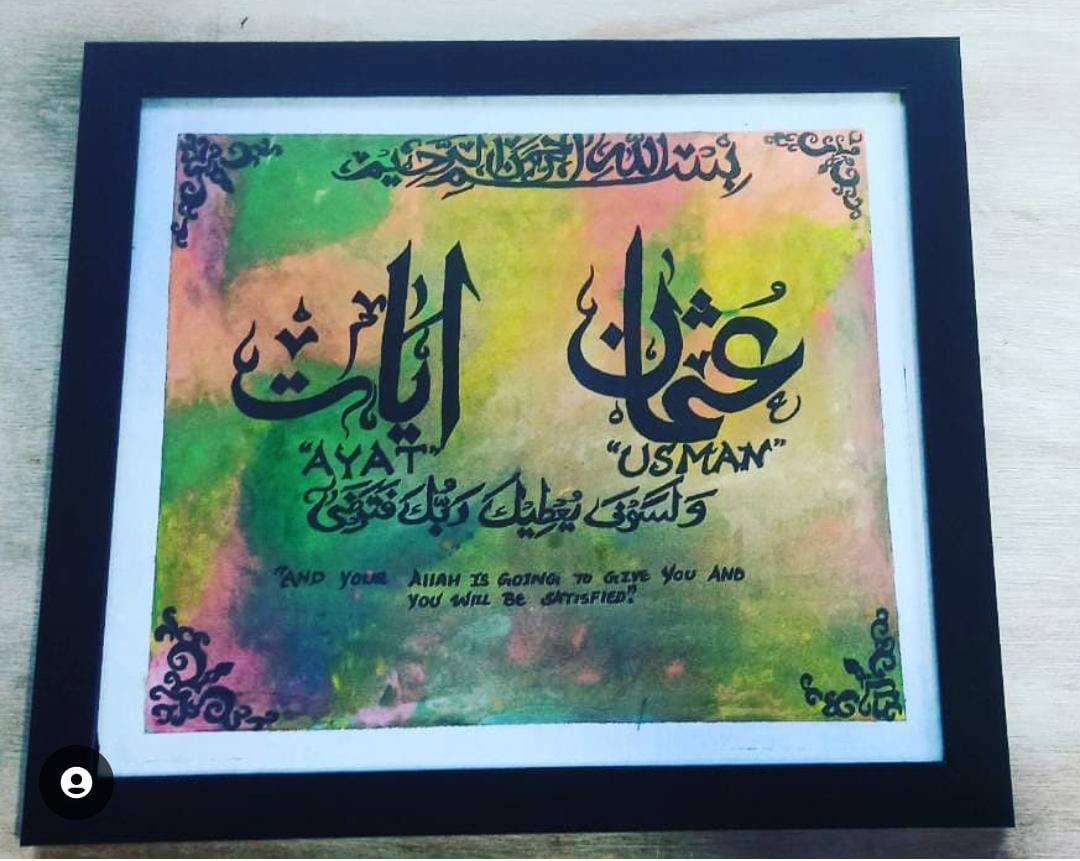 بِسْمِ اللهِ الرَّحْمٰنِ الرَّحِيْمِ
عُثمان
ایات
"USMAN"
"AYAT"
وَلَسَوْفَ يُعْطِيْكَ رَبُّكَ فَتَرْضَىٰ
"AND YOUR AllAH IS GOING TO GIVE YOU AND
YOU WILL BE SATISFIED"